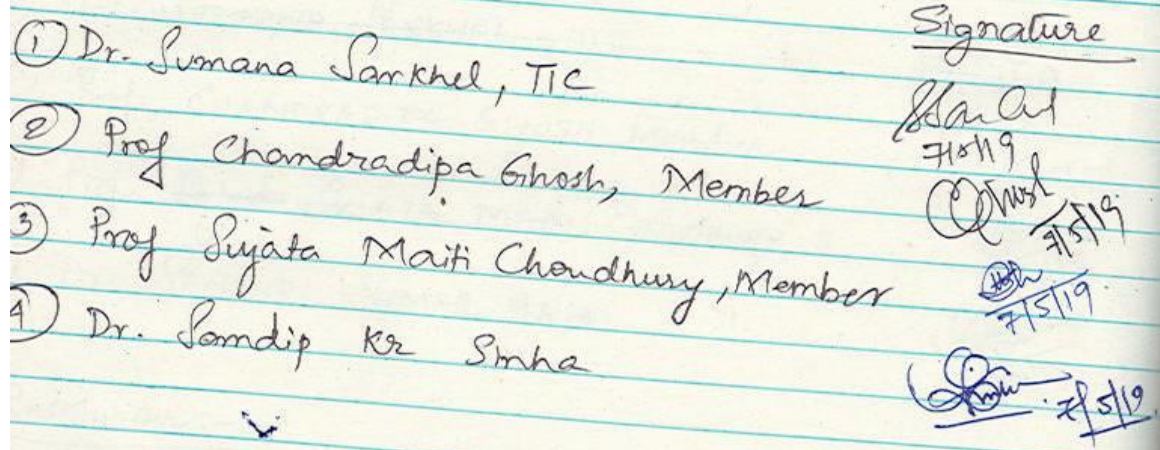 Signature
① Dr. Sumana Sarkhel, TIC
7/5/19
② Prof Chandradipa Ghosh, Member
Ghosh
7/5/19
③ Prof Sujata Maiti Choudhury, Member
7/5/19
④ Dr. Samdip Kr Sinha
7/5/19